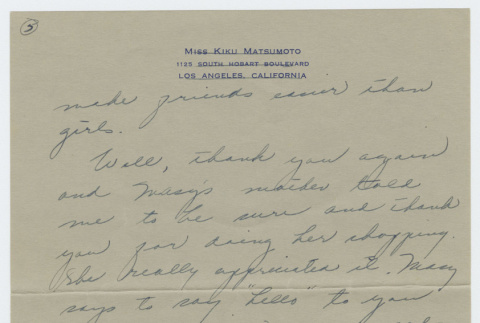 5
MISS KIKU MATSUMOTO
1125 SOUTH HOBART BOULEVARD
LOS ANGELES, CALIFORNIA
make friends easier than
girls.
Well, thank you again
and Masy's mother told
me to be sure and thank
you for doing her shopping.
She really appreciated it. Masy
says to say "hello" to you